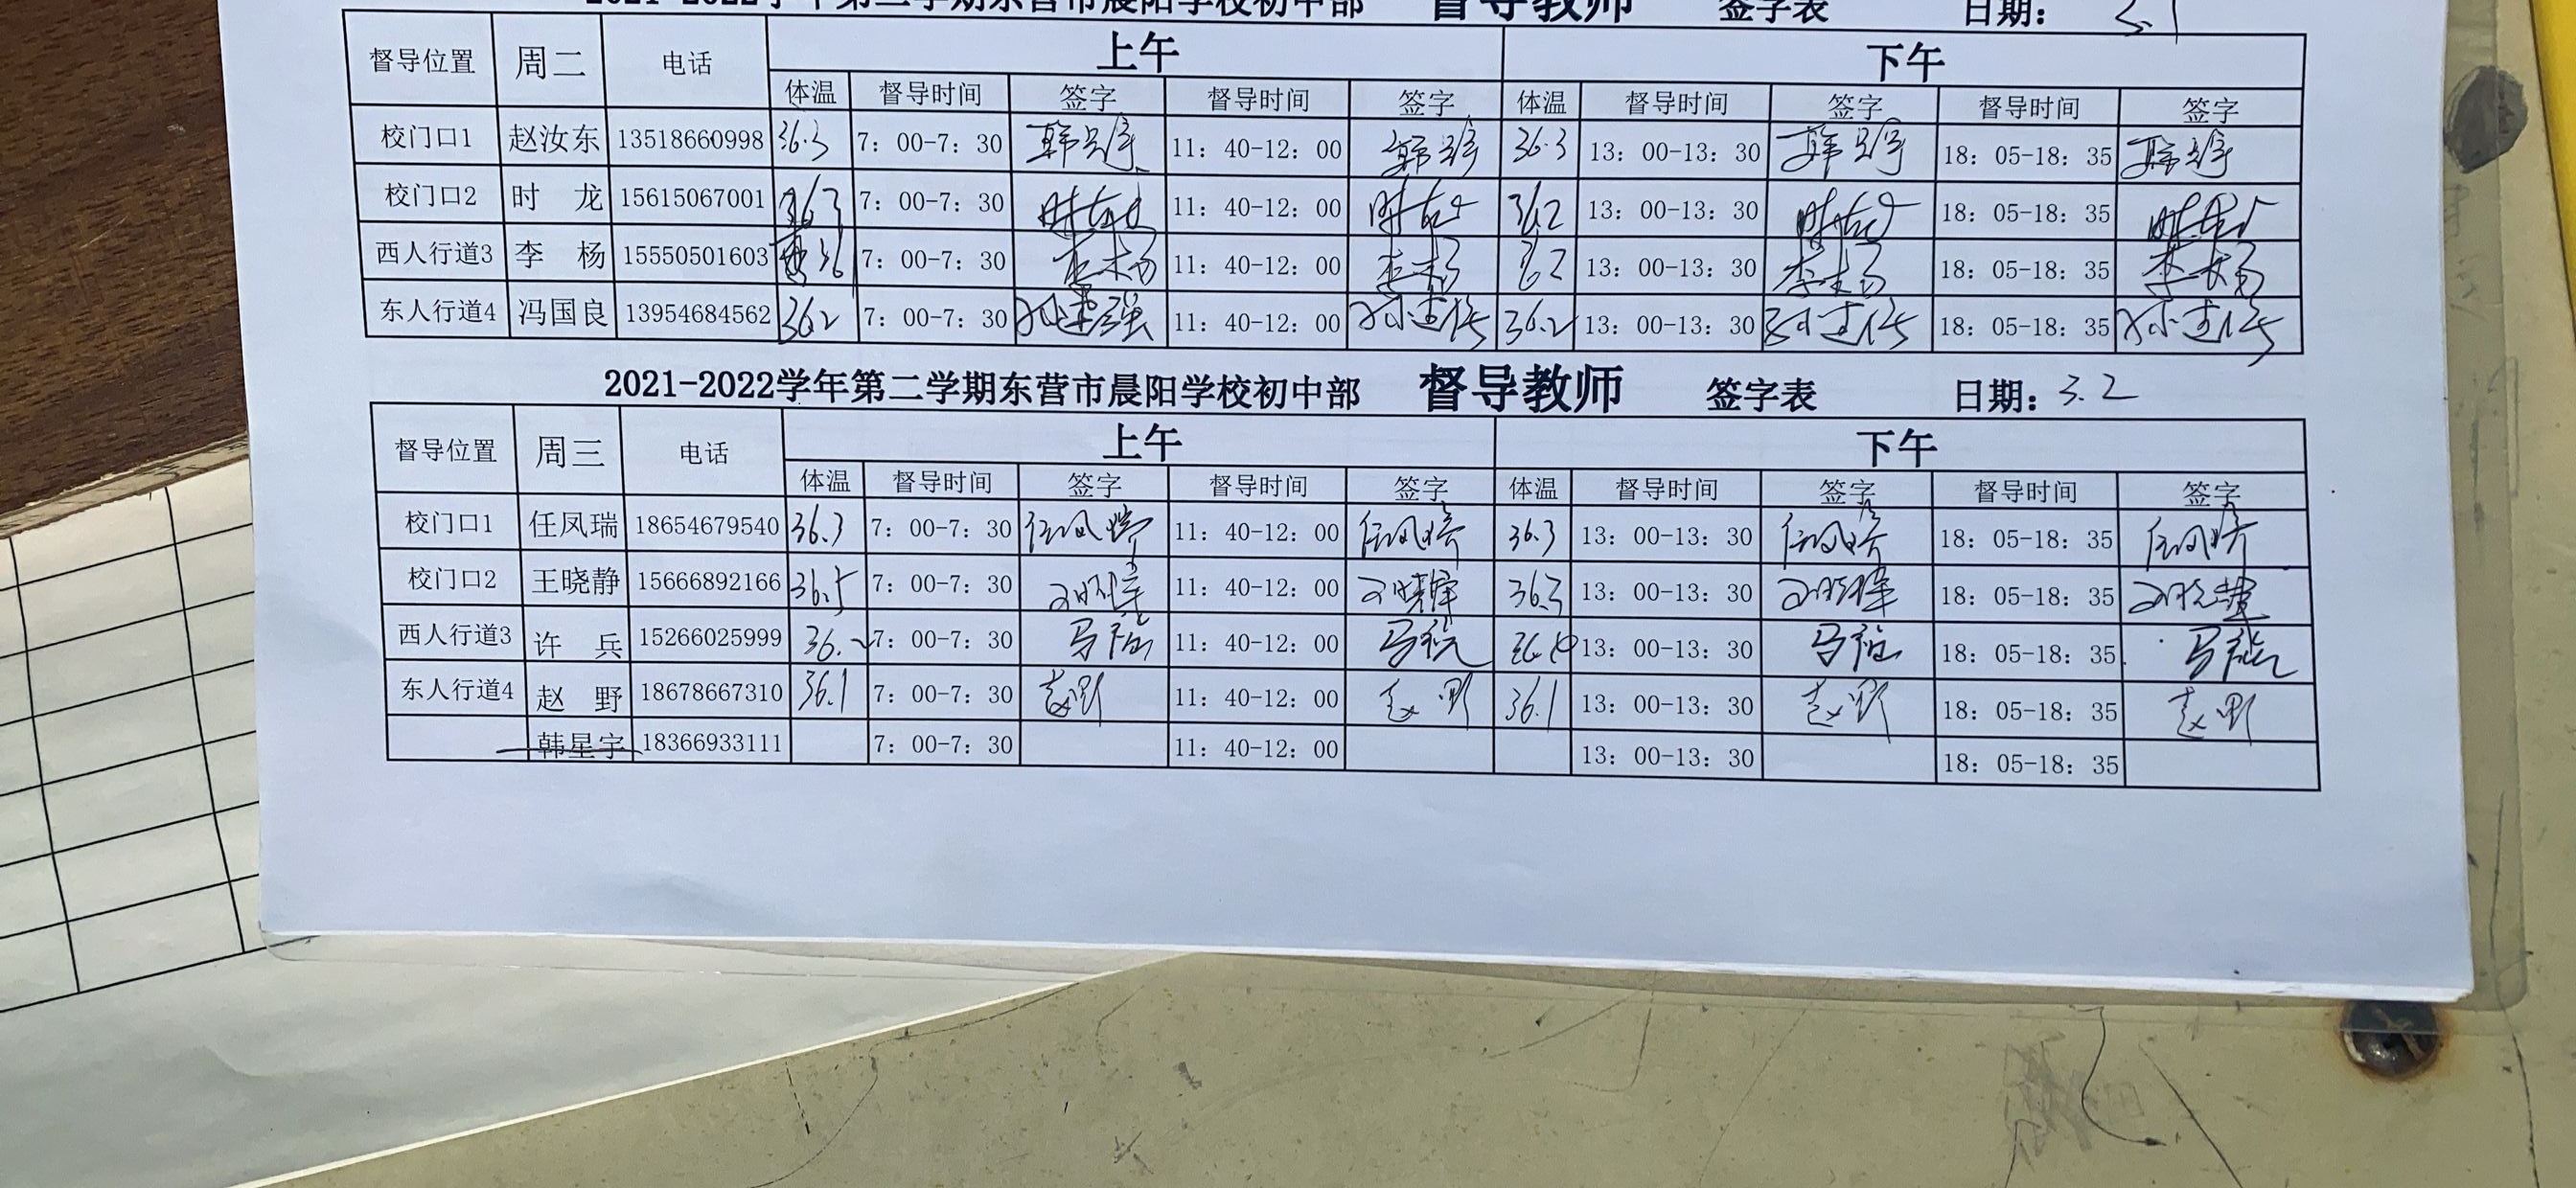 2021-2022学年第二学期东营市晨阳学校初中部 督导教师 签字表 日期: 3.1
督导位置 周二 电话 上午 下午
体温 督导时间 签字 督导时间 签字 体温 督导时间 签字 督导时间 签字
校门口1 赵汝东 13518660998 36.3 7：00-7：30 韩星宇 11：40-12：00 韩星宇 36.3 13：00-13：30 韩星宇 18：05-18：35 韩星宇
校门口2 时 龙 15615067001 36.3 7：00-7：30 11：40-12：00 36.2 13：00-13：30 18：05-18：35
西人行道3 李 杨 15550501603 7：00-7：30 李杨 11：40-12：00 李杨 13：00-13：30 李杨 18：05-18：35 李杨
东人行道4 冯国良 13954684562 36.2 7：00-7：30 孙建强 11：40-12：00 孙建强 36.2 13：00-13：30 孙建强 18：05-18：35 孙建强
2021-2022学年第二学期东营市晨阳学校初中部 督导教师 签字表 日期: 3.2
督导位置 周三 电话 上午 下午
体温 督导时间 签字 督导时间 签字 体温 督导时间 签字 督导时间 签字
校门口1 任凤瑞 18654679540 36.3 7：00-7：30 任凤瑞 11：40-12：00 任凤瑞 36.3 13：00-13：30 任凤瑞 18：05-18：35 任凤瑞
校门口2 王晓静 15666892166 36.5 7：00-7：30 11：40-12：00 36.3 13：00-13：30 18：05-18：35
西人行道3 许 兵 15266025999 36.2 7：00-7：30 11：40-12：00 13：00-13：30 18：05-18：35
东人行道4 赵 野 18678667310 36.1 7：00-7：30 赵野 11：40-12：00 赵野 36.1 13：00-13：30 赵野 18：05-18：35 赵野
韩星宇 18366933111 7：00-7：30 11：40-12：00 13：00-13：30 18：05-18：35